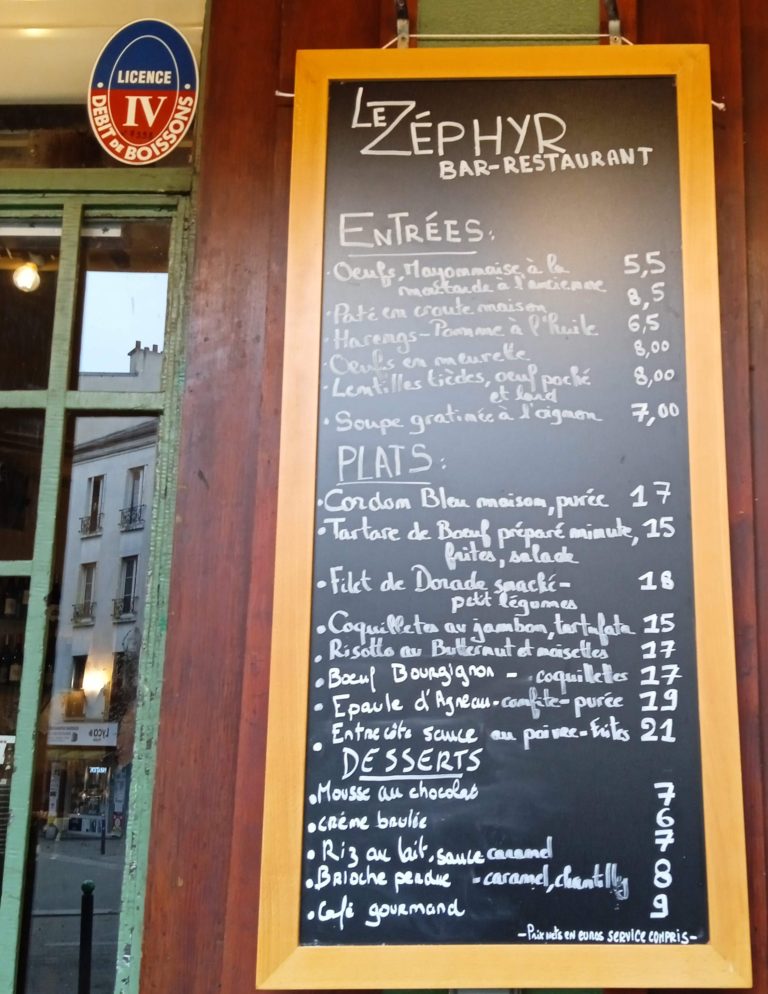 LICENCE
IV
DEBIT DE BOISSONS
LE ZÉPHYR
BAR-RESTAURANT
ENTRÉES:
· Oeufs, Mayonnaise à la 5,5
moutarde à l'ancienne
· Paté en croute maison 8,5
· Harengs-Pomme à l'huile 6,5
· Oeufs en meurette 8,00
· Lentilles tièdes, oeuf poché 8,00
et lard
· Soupe gratinée à l'oignon 7,00
PLATS:
· Cordon Bleu maison, purée 17
· Tartare de Boeuf préparé minute, 15
frites, salade
· Filet de Dorade snacké- 18
petit légumes
· Coquillettes au jambon, tartufata 15
· Risotto au Butternut et noisettes 17
· Boeuf Bourgignon - coquillettes 17
· Epaule d'Agneau-confite-purée 19
· Entrecôte sauce au poivre-frites 21
DESSERTS
· Mousse au chocolat 7
· crème brulée 6
· Riz au lait, sauce caramel 7
· Brioche perdue - caramel, chantilly 8
· Café gourmand 9
-PRIX NETS EN EUROS SERVICE COMPRIS-